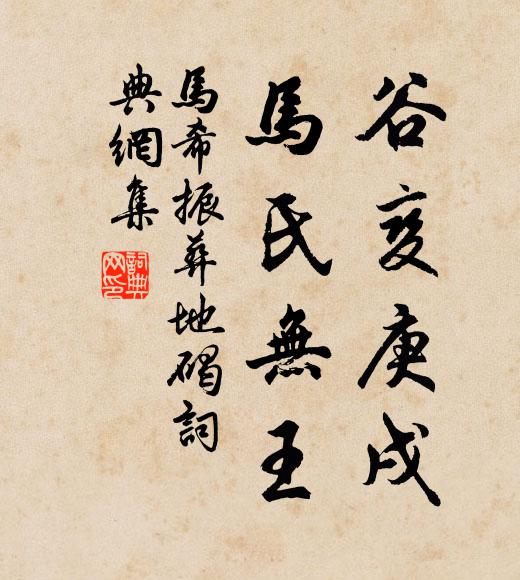 谷变庚戌
馬氏無王
馬希振葬地碣詞
典網集
詞典网印